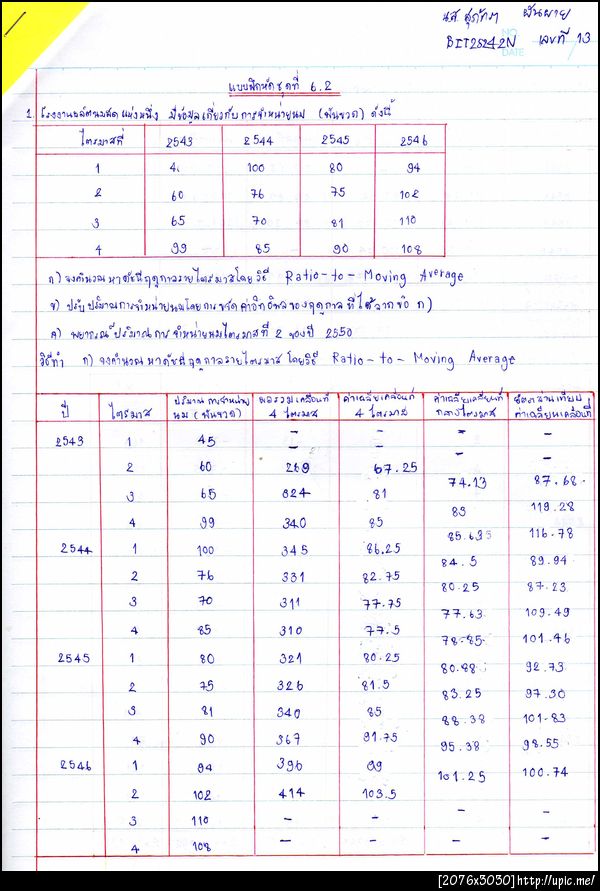 น.ส. สุภัทรา ผันผาย
BIT28242N เลขที่ 13
NO
DATE
แบบฝึกหัดชุดที่ 6.2
1. โรงงานผลิตนมสดแห่งหนึ่ง มีข้อมูลเกี่ยวกับการจำหน่ายนม (พันขวด) ดังนี้
ไตรมาสที่ 2543 2544 2545 2546
1 100 80 94
2 60 76 75 102
3 65 70 81 110
4 99 85 90 108
ก) จงคำนวณหาดัชนีฤดูกาลรายไตรมาสโดยวิธี Ratio-to-Moving Average
ข) ปรับปริมาณการจำหน่ายนมโดยการขจัดค่าอิทธิพลของฤดูกาลที่ได้จากข้อ ก)
ค) พยากรณ์ปริมาณการจำหน่ายนมไตรมาสที่ 2 ของปี 2550
วิธีทำ ก) จงคำนวณหาดัชนีฤดูกาลรายไตรมาสโดยวิธี Ratio-to-Moving Average
ปี ไตรมาส ปริมาณการจำหน่าย ผลรวมเคลื่อนที่ ค่าเฉลี่ยเคลื่อนที่ ค่าเฉลี่ยเคลื่อนที่ อัตราส่วนเทียบ
นม (พันขวด) 4 ไตรมาส 4 ไตรมาส กลางไตรมาส ค่าเฉลี่ยเคลื่อนที่
2543 1 45 - - - -
- -
2 60 269 67.25
74.13 87.68
3 65 324 81
83 119.28
4 99 340 85
85.635 116.78
2544 1 100 345 86.25
84.5 89.94
2 76 331 82.75
80.25 87.23
3 70 311 77.75
77.63 109.49
4 85 310 77.5
78.85 101.46
2545 1 80 321 80.25
80.88 92.73
2 75 326 81.5
83.25 97.30
3 81 340 85
88.38 101.83
4 90 367 91.75
95.38 98.55
2546 1 94 396 99
101.25 100.74
2 102 414 103.5
- -
3 110 - -
- -
4 108 - -
[2076x3030]http://upic.me/